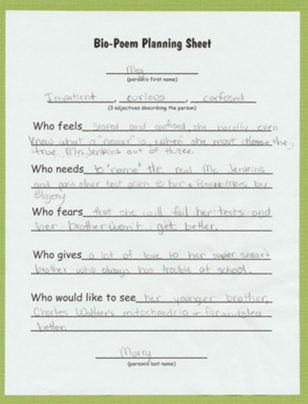 Bio-Poem Planning Sheet
Meg
(person's first name)
Impatient, curious, confused
(3 adjectives describing the person)
Who feels scared and confused, she hardly even
know what a "namer" is, when she must choose the
true Mr. Jenkins out of three.
Who needs to "name" the real Mr. Jenkins
and pass other test given to her + Proginoskes by
Blajeny
Who fears that she will fail her tests and
her brother won't get better.
Who gives a lot of love to her super smart
brother who always has trouble at school.
Who would like to see her younger brother,
Charles Wallace's mitochondria + farandolea
better.
Murry
(person's last name)